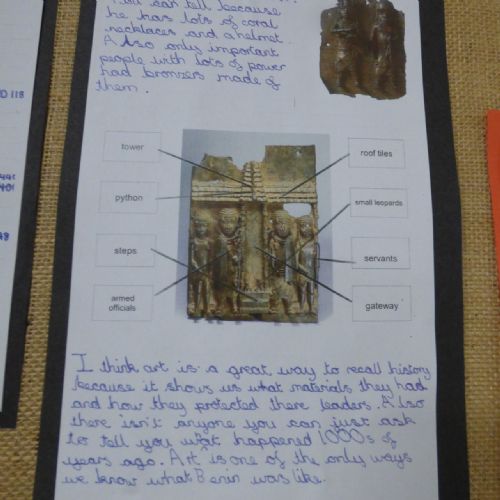 You can tell because
he has lots of coral
necklaces and a helmet.
Also only important
people with lots of power
had bronzes made of
them.
D 118
tower
roof tiles
python
small leopards
steps
servants
armed
officials
gateway
I think art is a great way to recall history
because it shows us what materials they had
and how they protected there leaders. Also
there isn't anyone you can just ask
to tell you what happened 1000s of
years ago. Art is one of the only ways
we know what Benin was like.